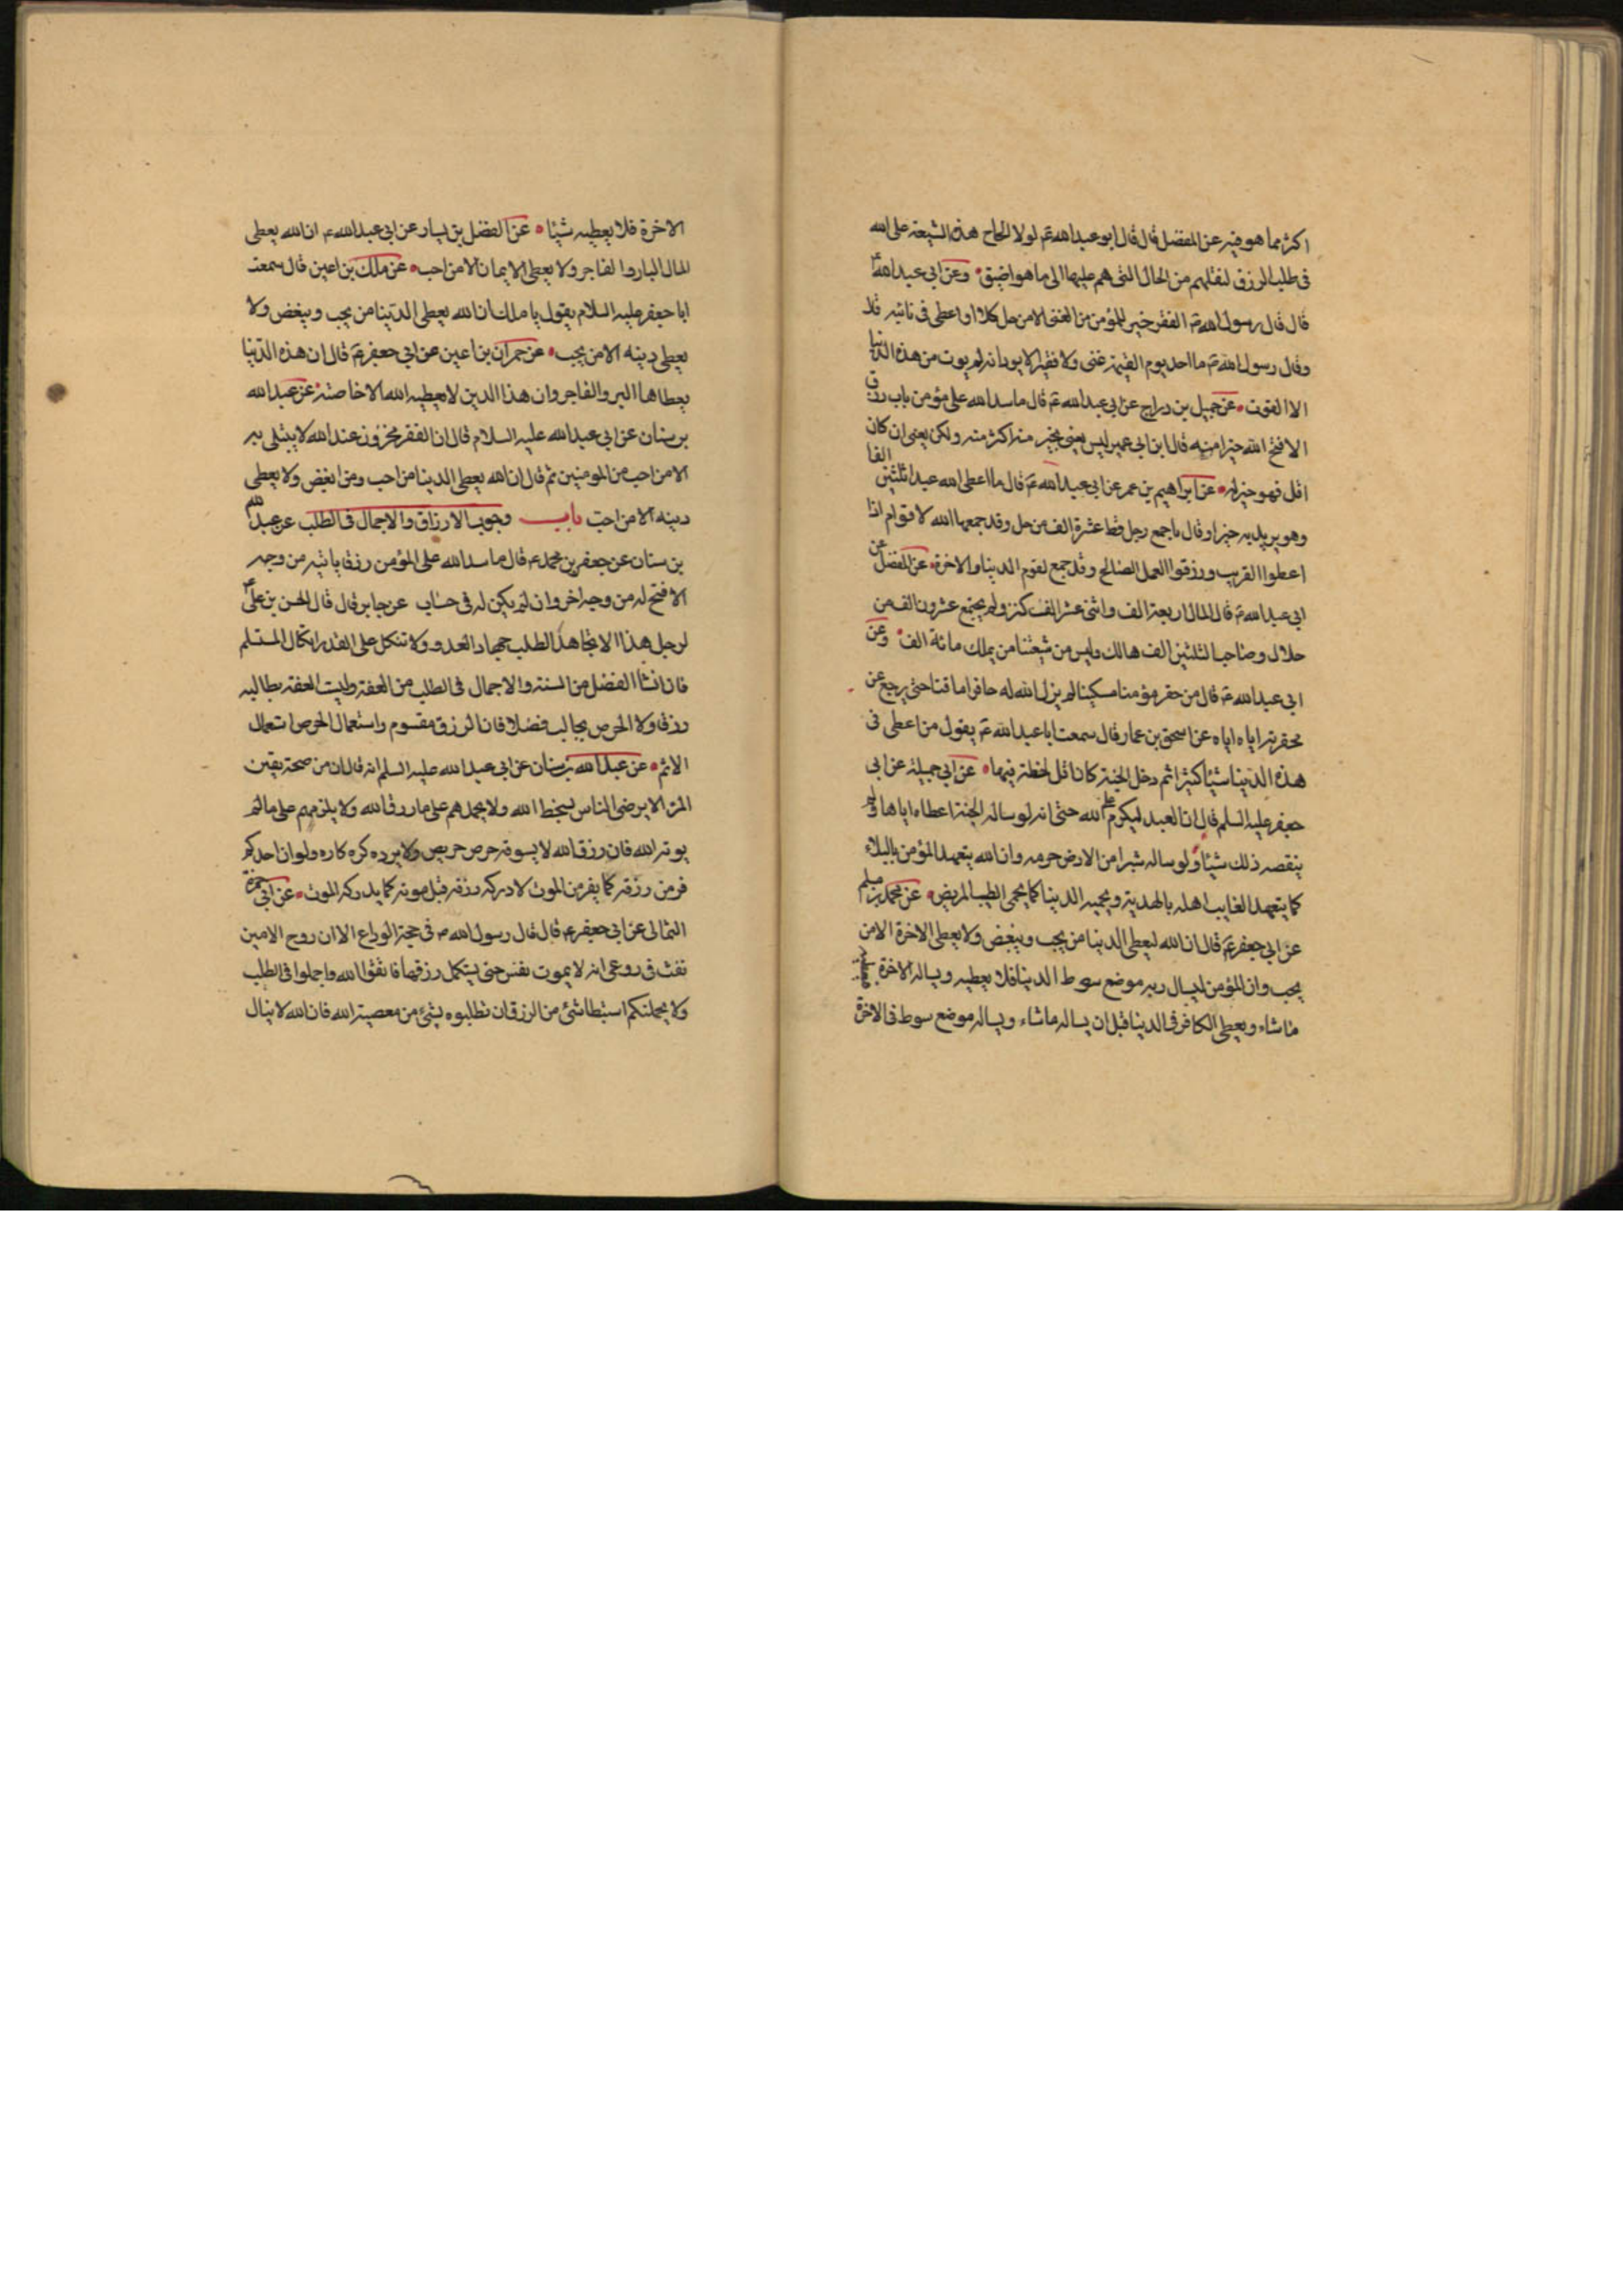 اكثر مما هو فيه عن المفضل قال قال ابو عبد الله ع لولا الحاح هذه الشيعة على الله
فى طلب الرزق لنقلهم من الحال التى هم عليها الى ما هو اضيق وعن ابى عبد الله ع
قال قال رسول الله ص الفقر خير للمؤمن من الغنى الا من حمل كلا او اعطى فى نائبه قال
وقال رسول الله ص ما احد يوم القيمة غنى ولا فقير الا يود انه لم يوت من هذه الدنيا
الا القوت عن جميل بن دراج عن ابى عبد الله ع قال ما سد الله على مؤمن باب رزق
الا فتح الله خيرا منه قال ابن ابى عمير ليس يعنى بخير منه اكثر منه ولكن يعنى ان كان
اقل فهو خير له عن ابراهيم بن عمر عن ابى عبد الله ع قال ما اعطى الله عبدا ثلثين الفا
وهو يريد به خيرا وقال ما جمع رجل قط عشرة الف من حل وقد جمعها الله لاقوام اذا
اعطوا القريب ورزقوا العمل الصالح وقد جمع لقوم الدنيا والاخرة عن المفضل عن
ابى عبد الله ع قال المال اربعة الف واثنى عشر الف كنز ولم يجتمع عشرون الف من
حلال وصاحب الثلثين الف هالك وليس من شيعتنا من يملك مائة الف وعن
ابى عبد الله ع قال من حقر مؤمنا مسكينا لم يزل الله له حاقرا ماقتا حتى يرجع عن
محقرته اياه اياه عن اسحق بن عمار قال سمعت ابا عبد الله ع يقول من اعطى فى
هذه الدنيا شيئا كثيرا ثم دخل الجنة كان اقل لحظه فيها عن ابى جميلة عن ابى
جعفر عليه السلم قال ان العبد ليكرم على الله حتى انه لو ساله الجنة اعطاه اياها ولم
ينقصه ذلك شيئا ولو ساله شبرا من الارض حرمه وان الله يتعهد المؤمن بالبلاء
كما يتعهد الغايب اهله بالهدية ويحميه الدنيا كما يحمى الطبيب المريض عن محمد بن مسلم
عن ابى جعفر ع قال ان الله ليعطى الدنيا من يحب ويبغض ولا يعطى الاخرة الا من
يحب وان المؤمن ليسال ربه موضع سوط الدنيا فلا يعطيه ويساله الاخرة فيعطيه
ما شاء ويعطى الكافر فى الدنيا قبل ان يساله ما شاء ويساله موضع سوط فى الاخرة
الاخرة فلا يعطيه شيئا عن الفضل بن يسار عن ابى عبد الله ع ان الله يعطى
المال البار والفاجر ولا يعطى الايمان الا من احب عن ملك بن اعين قال سمعت
ابا جعفر عليه السلام يقول يا ملك ان الله يعطى الدنيا من يحب ويبغض ولا
يعطى دينه الا من يحب عن حمران بن اعين عن ابى جعفر ع قال ان هذه الدنيا
يعطاها البر والفاجر وان هذا الدين لا يعطيه الله الا خاصته عن عبد الله
بن سنان عن ابى عبد الله عليه السلام قال ان الفقر مخزون عند الله لا يبتلى به
الا من احب من المومنين ثم قال ان الله يعطى الدينا من احب ومن ابغض ولا يعطى
دينه الا من احب باب وجوب الارزاق والاجمال فى الطلب عن عبد الله
بن سنان عن جعفر بن محمد ع قال ما سد الله على المؤمن رزقا ياتيه من وجه
الا فتح له من وجه اخر وان لم يكن له فى حساب عن جابر قال قال الحسن بن على ع
لرجل هذا الا تجاهد الطلب جهاد العدو ولا تتكل على القدر اتكال المستلم
فان انشا الفضل من السنة والاجمال فى الطلب من العفة وليست العفة بطاليه
رزقا ولا الحرص بجالب فضلا فان الرزق مقسوم واستعمال الحرص استعمال
الاثم عن عبد الله بن سنان عن ابى عبد الله عليه السلم انه قال ان من صحة يقين
المرء الا يرضى الناس بسخط الله ولا يحمدهم على ما رزق الله ولا يلزمهم على ما لم
يوته الله فان رزق الله لا يسوقه حرص حريص ولا يرده كره كاره ولو ان احدكم
فر من رزقه كما يفر من الموت لادركه رزقه قبل موته كما يدركه الموت عن ابى حمزة
الثمالى عن ابى جعفر ع قال قال رسول الله ص فى حجة الوداع الا ان روح الامين
نفث فى روعى انه لا يموت نفس حتى يستكمل رزقها فاتقوا الله واجملوا فى الطلب
ولا يحملنكم استبطا شئ من الرزق ان تطلبوه بشئ من معصية الله فان الله لا ينال